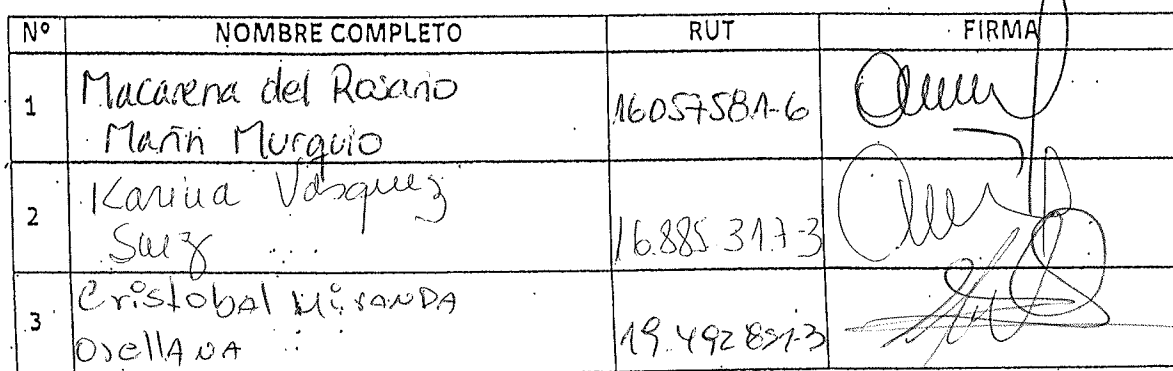 Nº NOMBRE COMPLETO RUT FIRMA
1 Macarena del Rosario
Marín Murguio 16057581-6
2 Karina Vásquez
16.885.317-3
3 Cristobal MirANDA
OrellANA 19.492851-3